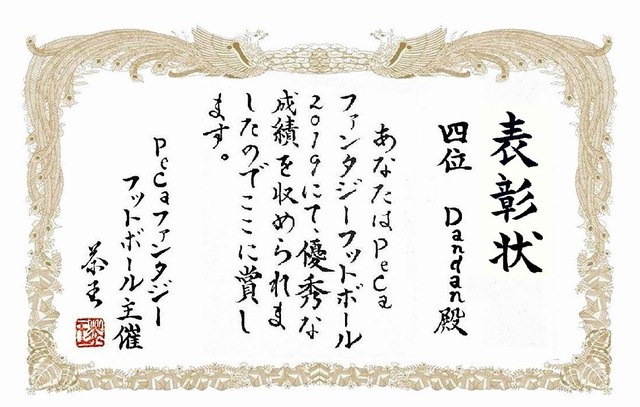 表彰状
四位 Dandan殿
あなたはPeCa
ファンタジーフットボール
2019にて、優秀な
成績を収められま
したのでここに賞し
ます。
PeCaファンタジー
フットボール主催
茶王